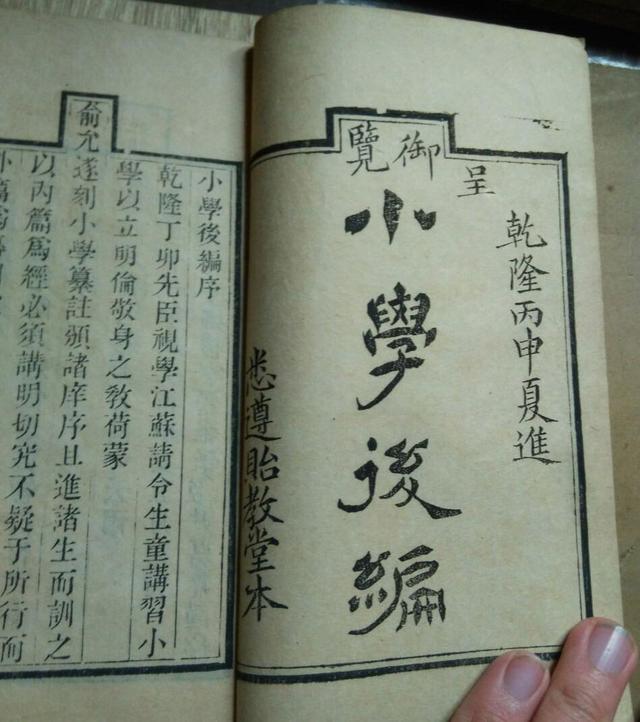 乾隆丙申夏進
呈
御覽
小學後編
悉遵貽教堂本
小學後編序
乾隆丁卯先臣視學江蘇請令生童講習小
學以立明倫敬身之教荷蒙
俞允遂刻小學纂註頒諸庠序且進諸生而訓之
以內篇爲經必須講明切究不疑于所行而